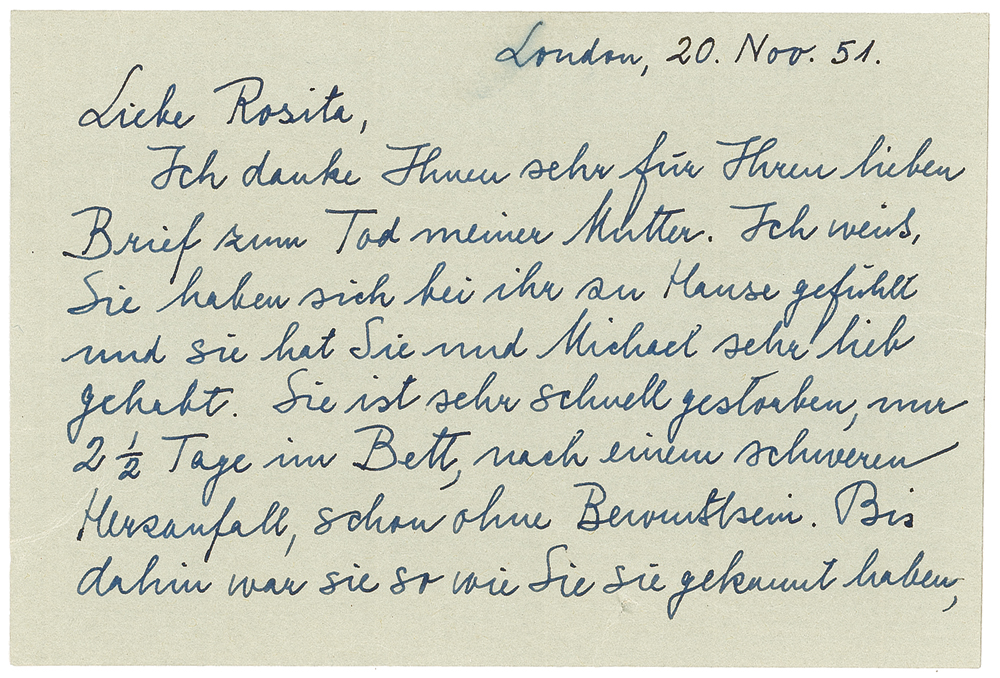 London, 20. Nov. 51.
Liebe Rosita,
Ich danke Ihnen sehr für Ihren lieben
Brief zum Tod meiner Mutter. Ich weiss,
Sie haben sich bei ihr zu Hause gefühlt
und sie hat Sie und Michael sehr lieb
gehabt. Sie ist sehr schnell gestorben, nur
2 ½ Tage im Bett, nach einem schweren
Herzanfall, schon ohne Bewusstsein. Bis
dahin war sie so wie Sie sie gekannt haben,